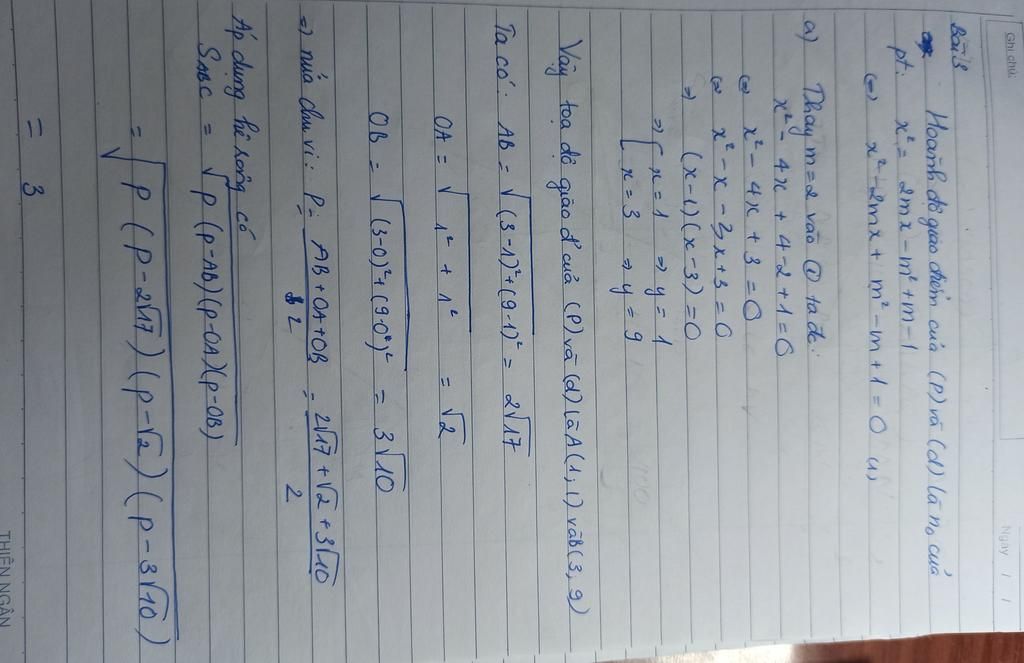 Ghi chú:
Ngày / /
Bài 3
Hoành độ giao điểm của (P) và (d) là n₀ của
pt: x² = 2mx - m² + m - 1
(=) x² - 2mx + m² - m + 1 = 0 (1)
a) Thay m = 2 vào @ ta đc:
x² - 4x + 4 - 2 + 1 = 0
(=) x² - 4x + 3 = 0
(=) x² - x - 3x + 3 = 0
=) (x - 1)(x - 3) = 0
=) [ x = 1 =) y = 1
[ x = 3 =) y = 9
Vậy toạ độ giao đ' của (P) và (d) là A(1; 1) và B(3; 9)
Ta có: AB = √((3-1)² + (9-1)²) = 2√17
OA = √(1² + 1²) = √2
OB = √((3-0)² + (9-0²)²) = 3√10
=) nửa chu vi: P = (AB + OA + OB)/2 = (2√17 + √2 + 3√10)/2
Áp dụng hê rông có
SABC = √(p (p - AB)(p - OA)(p - OB))
= √(p (p - 2√17)(p - √2)(p - 3√10))
= 3
THIÊN NGÂN